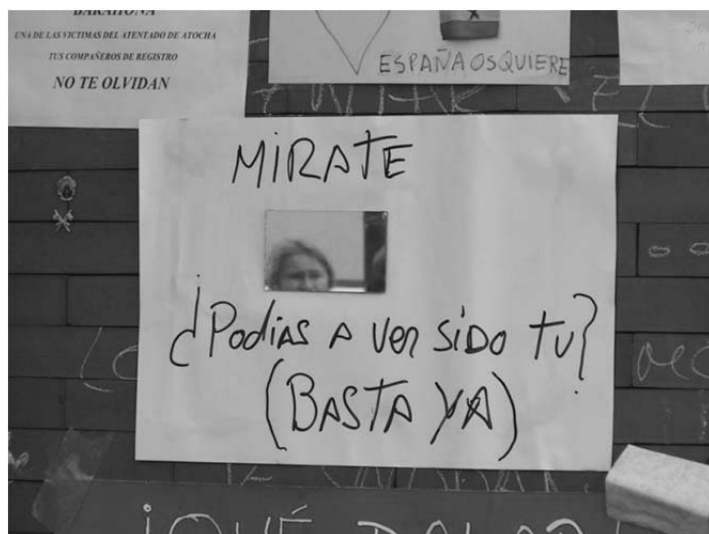 BARAHONA
UNA DE LAS VICTIMAS DEL ATENTADO DE ATOCHA
TUS COMPAÑEROS DE REGISTRO
NO TE OLVIDAN
ESPAÑA OS QUIERE
MIRATE
¿PODIAS A VER SIDO TU?
(BASTA YA)
¡QUÉ